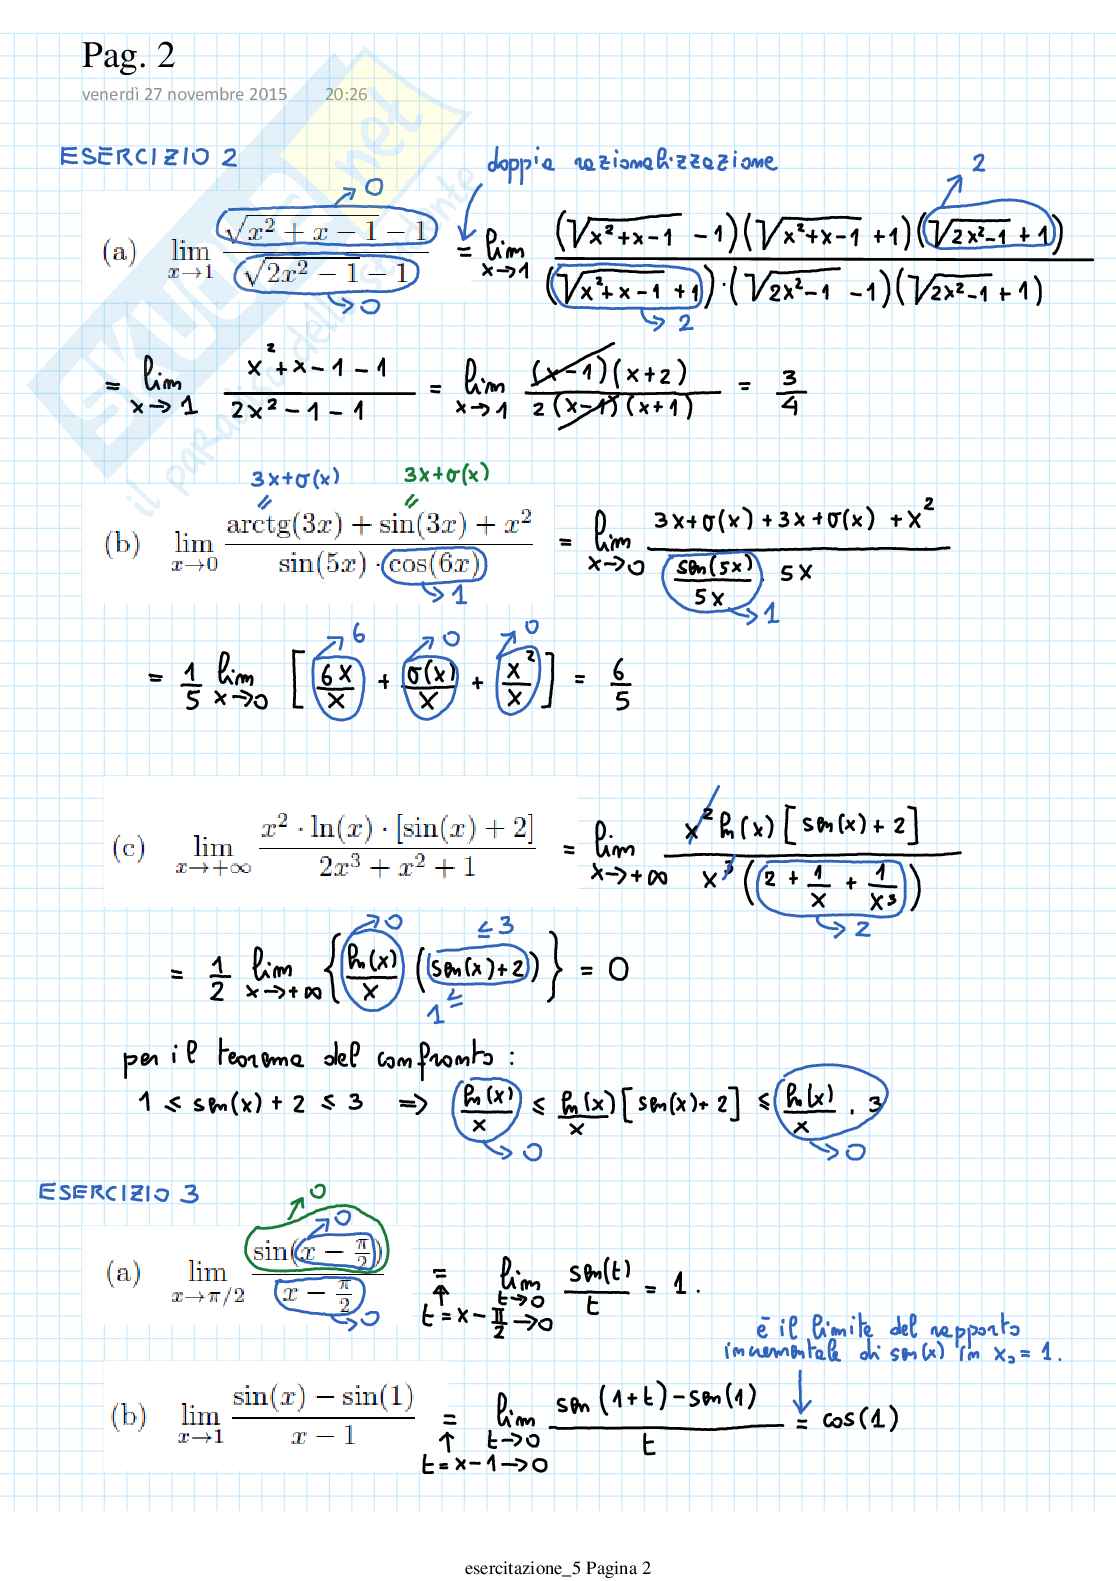 Pag. 2
venerdì 27 novembre 2015 20:26
ESERCIZIO 2
doppia razionalizzazione
(a) lim x→1 (√(x² + x − 1) − 1 → 0) / (√(2x² − 1) − 1 → 0) = lim x→1 (√(x²+x−1) −1)(√(x²+x−1) +1)(√(2x²−1) +1 → 2) / (√(x²+x−1) +1 → 2)·(√(2x²−1) −1)(√(2x²−1) +1)
= lim x→1 (x²+x−1−1) / (2x²−1−1) = lim x→1 (x−1)(x+2) / 2(x−1)(x+1) = 3/4
3x+σ(x) 3x+σ(x)
(b) lim x→0 (arctg(3x) + sin(3x) + x²) / (sin(5x) · cos(6x) → 1) = lim x→0 (3x+σ(x)+3x+σ(x)+x²) / (sen(5x)/5x → 1 · 5x)
= 1/5 lim x→0 [6x/x → 6 + σ(x)/x → 0 + x²/x → 0] = 6/5
(c) lim x→+∞ (x² · ln(x) · [sin(x) + 2]) / (2x³ + x² + 1) = lim x→+∞ x² ln(x)[sen(x)+2] / x³(2 + 1/x + 1/x³ → 2)
= 1/2 lim x→+∞ {ln(x)/x → 0 (1 ≤ sen(x)+2 ≤ 3)} = 0
per il teorema del confronto:
1 ≤ sen(x)+2 ≤ 3 ⇒ ln(x)/x → 0 ≤ ln(x)/x [sen(x)+2] ≤ ln(x)/x · 3 → 0
ESERCIZIO 3
(a) lim x→π/2 sin(x − π/2) → 0 / (x − π/2) → 0 = lim t→0 sen(t)/t = 1.
t=x−π/2→0
è il limite del rapporto
incrementale di sen(x) in x₀=1.
(b) lim x→1 (sin(x) − sin(1)) / (x − 1) = lim t→0 (sen(1+t)−sen(1)) / t = cos(1)
t=x−1→0
esercitazione_5 Pagina 2